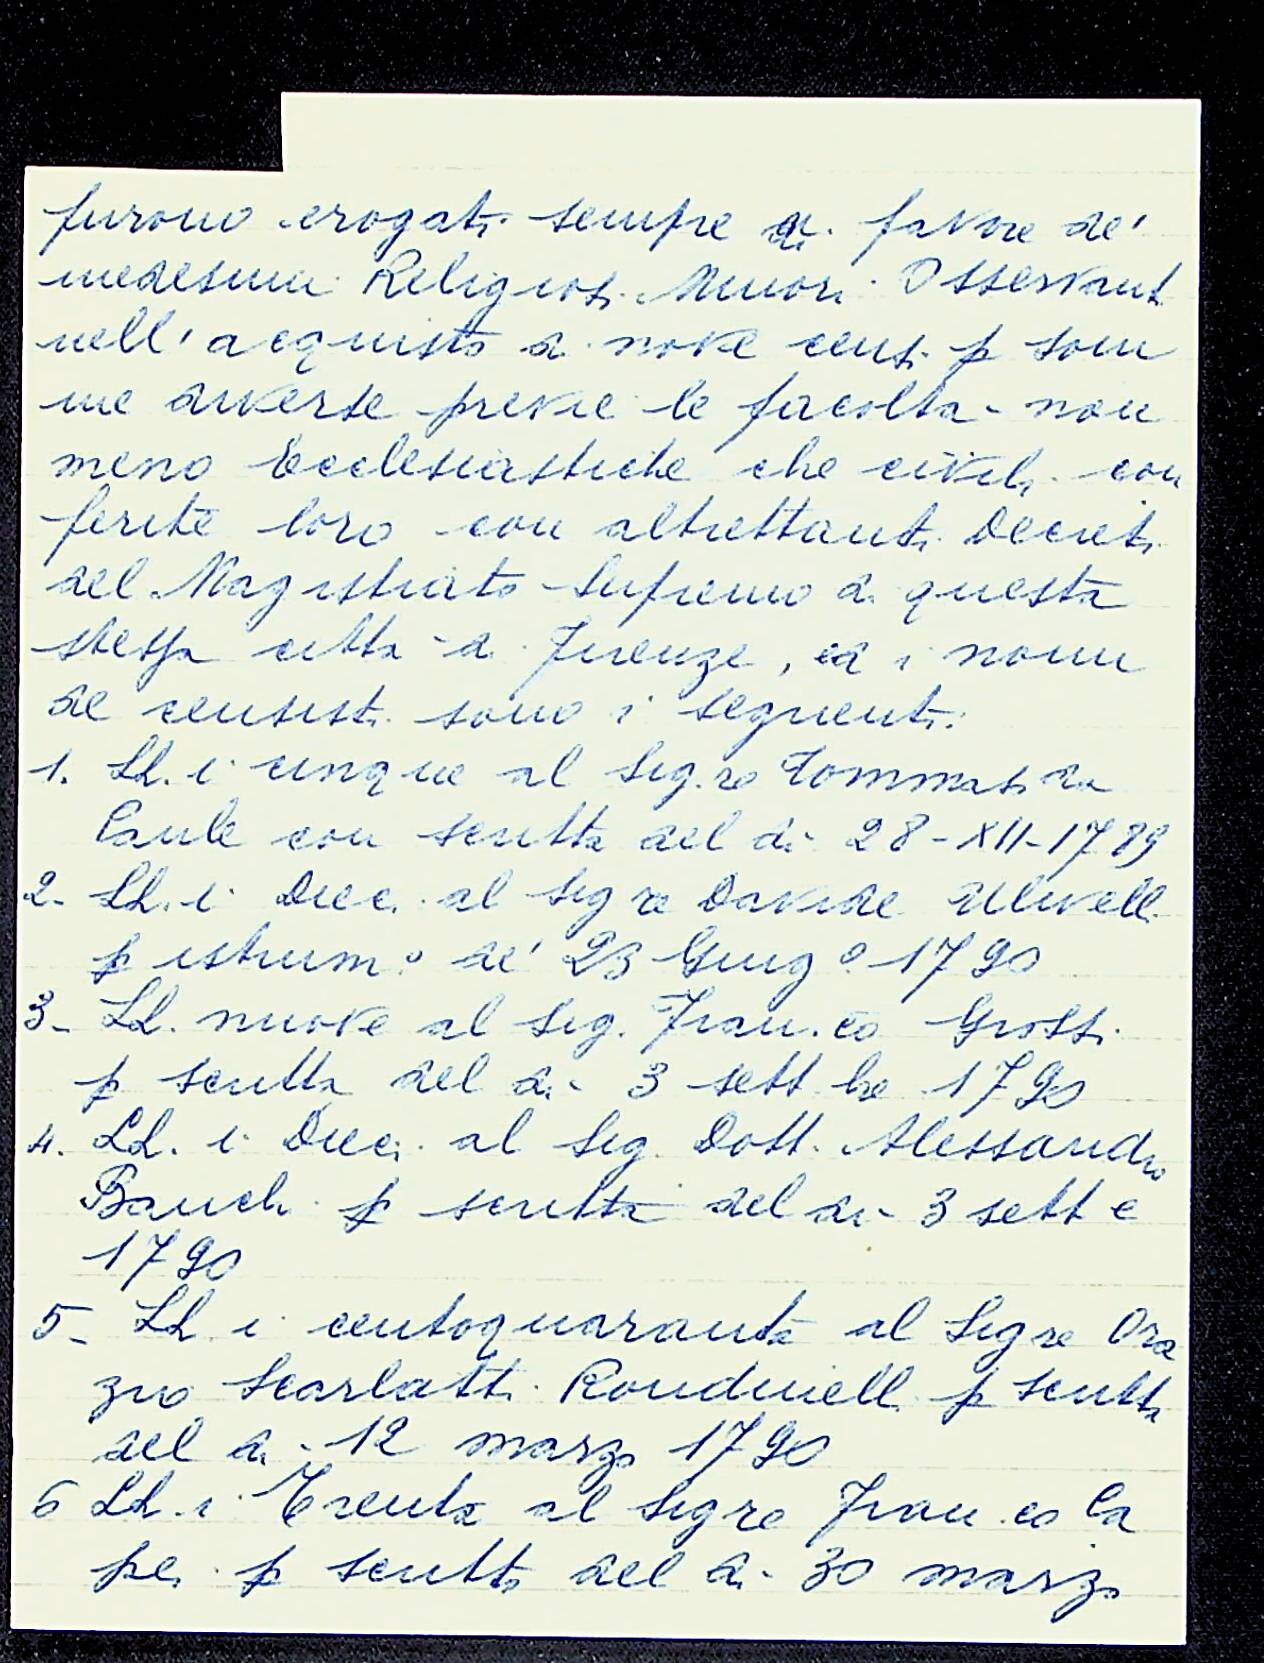 furono erogati sempre a favore de'
medesimi Religiosi Minori Osservanti
nell'acquisto di nove censi p som
me diverse previe le facoltà non
meno Ecclesiastiche che civili con
ferite loro con altrettanti Decreti
del Magistrato Supremo di questa
stessa città di Firenze, ed i nomi
de censisti sono i seguenti:
1. Sd. i cinque al Sig.re Tommasi da
con scritta del dì 28-XII-1789
2- Sd. i Dieci al Sig re Davide Ulivelli
p istrum.o de' 23 Giug o 1790
3- Sd. nuove al Sig. Fran.co Grossi
p scritta del dì 3 sett bre 1790
4. Sd. i Dieci al Sig. Dott. Alessandro
Banchi p scritta del dì 3 sett e
1790
5- Sd i centoquaranta al Sig re Ora
zio Scarlatti Rondinelli p scritta
del dì 12 marzo 1790
6 Sd. i Trenta al Sig re Fran.co La
pi p scritta del dì 30 marzo